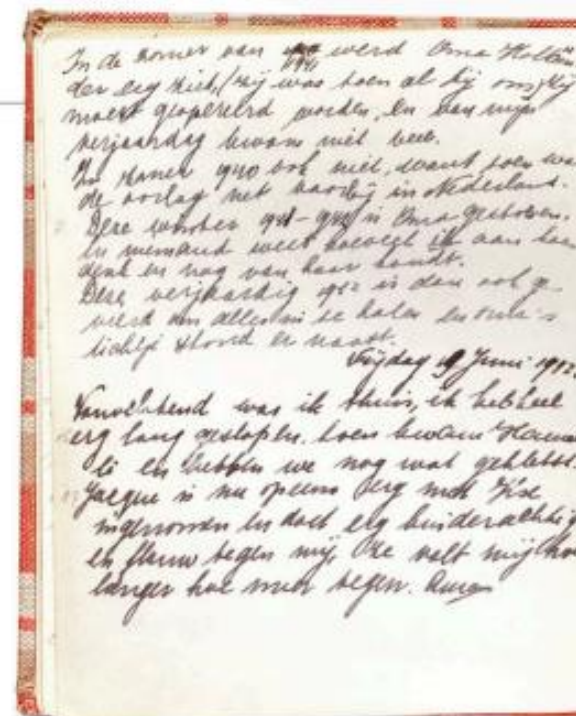 In de zomer van 1941 werd Oma Hollän-
der erg ziek, (zij was toen al bij ons) zij
moest geopereerd worden, en van mijn
verjaardag kwam niet veel.
In zomer 1940 ook niet, want toen was
de oorlog net voorbij in Nederland.
Deze winter 1941-1942 is Oma gestorven.
En niemand weet hoeveel ik aan haar
denk en nog van haar houdt.
Deze verjaardig 1942 is dan ook ge-
vierd om alles in te halen en oma's
lichtje stond er naast.
Vrijdag 19 Juni 1942.
Vanochtend was ik thuis, ik heb heel
erg lang geslapen, toen kwam Hanne-
li en hebben we nog wat geklètst.
Jacque is nu opeens erg met Ilse
ingenomen en doet erg kinderachtig
en flauw tegen mij, ze valt mij hoe
langer hoe meer tegen.